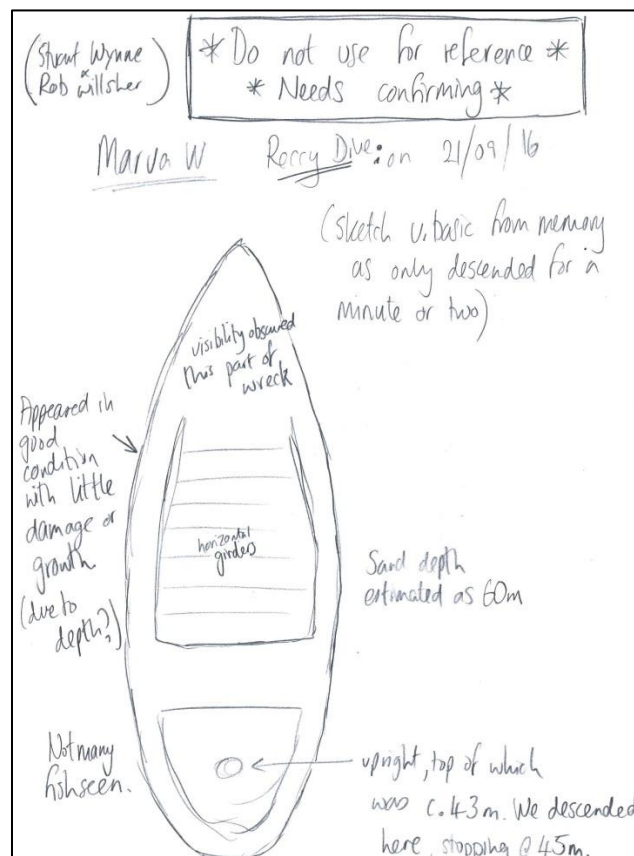 (Stuart Wynne
Rob Willsher)
* Do not use for reference *
* Needs confirming *
Marva W Reccy Dive: on 21/09/16
(sketch v. basic from memory
as only descended for a
minute or two)
visibility obscured
this part of
wreck
Appeared in
good
condition
with little
damage or
growth
(due to
depth?)
horizontal
girders
Sand depth
estimated as 60m
Not many
fish seen.
upright, top of which
was c. 43m. We descended
here, stopping @ 45m.